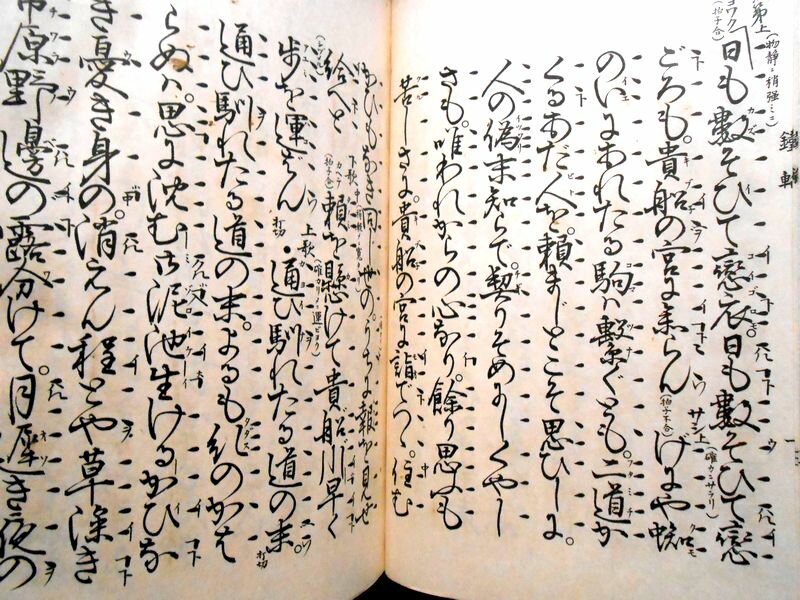 鐵輪
第上(物靜ニ稍强ミニ)
ヨワク
(拍子合)
日も數そひて戀衣日も數そひて戀
ごろも。貴船の宮に參らん(拍子不合)サシ上(確カニサラリ)げにや蜘
のいにあれたる駒ハ繫ぐとも。二道か
くるあだ人を。頼まじとこそ思ひしに。
人の僞末知らで。契りそめにしくやし
さも。唯われからの心なり。餘り思ふも
苦しさに。貴船の宮に詣でつゝ。住む
かひもなき同じ世のうちに報を見せ
給へと 下歌(拍子合)頼を懸けて貴船川早く
步を運ばん 打切 上歌 通ひ馴れたる道の末。打切
通ひ馴れたる道の末。よるも糺のかは
らぬハ。思に沈む御泥池生けるかひな
き憂き身の。消えん程とや草深き
市原野邊の露分けて。月遲き夜の